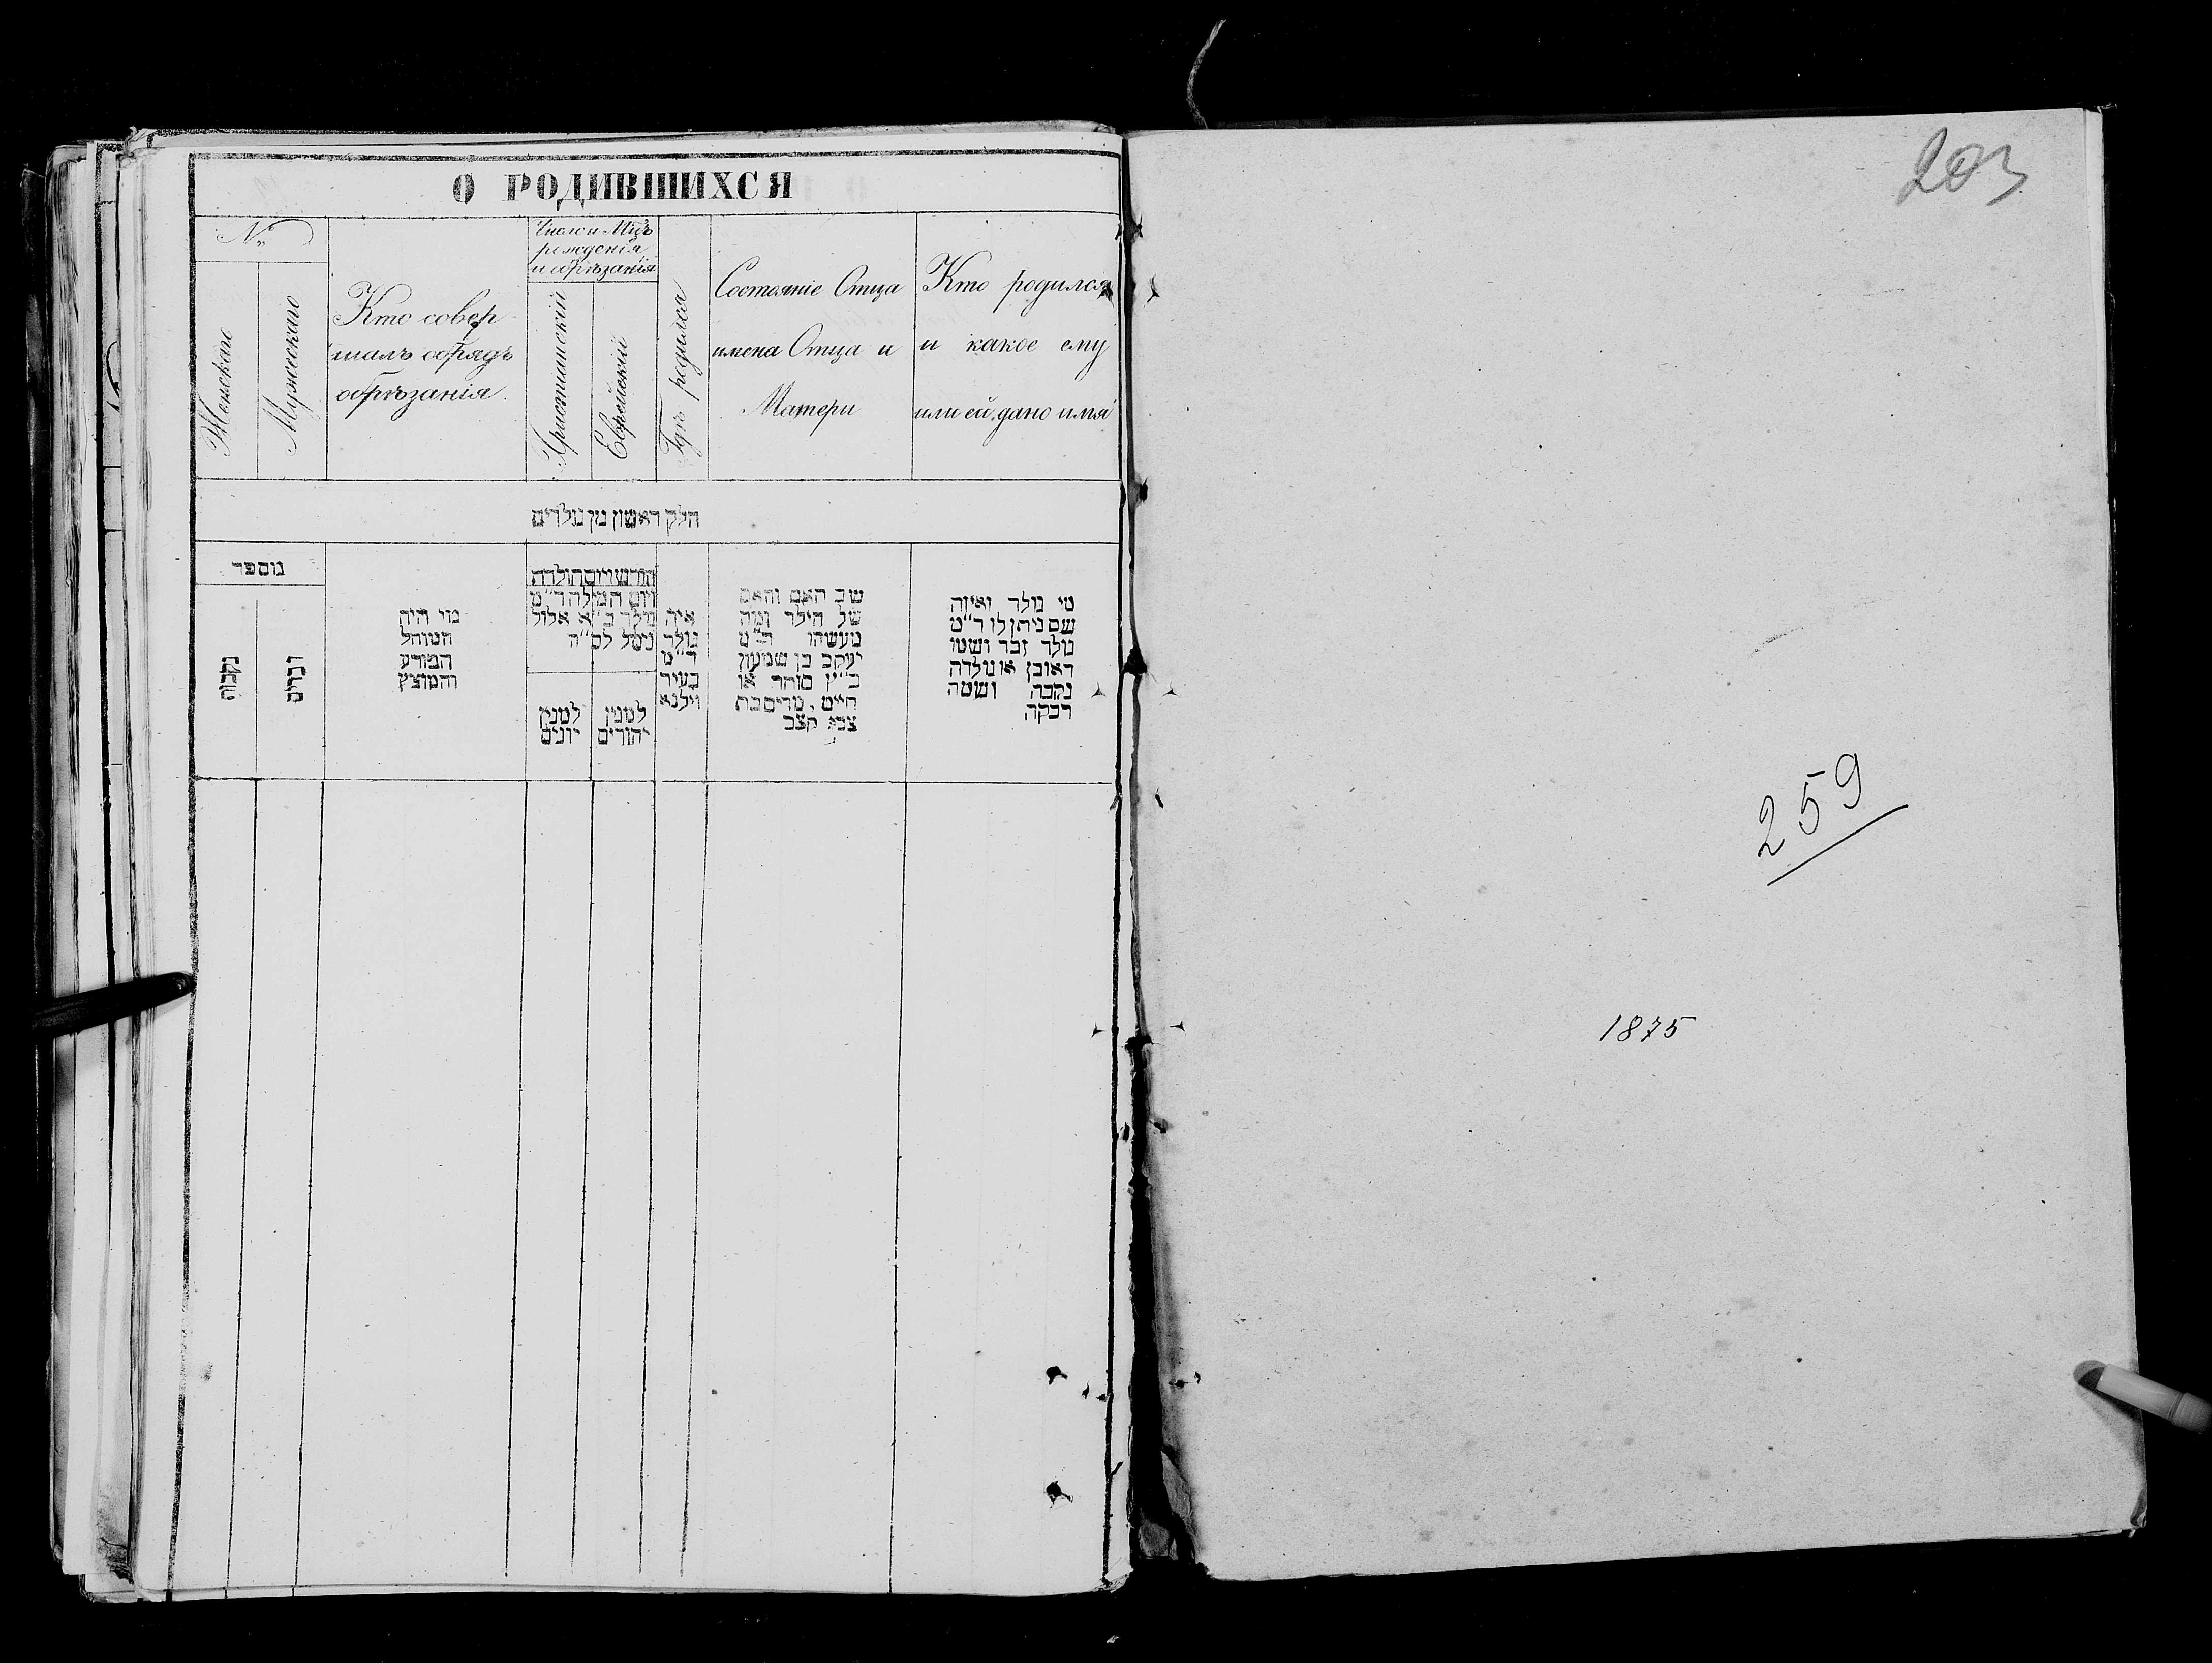 О РОДИВШИХСЯ
№
Женскаго
Мужескаго
Кто совер-
шалъ обрядъ
обрѣзанія.
Число и Мѣцъ
рожденія
и обрѣзанія
Христіанскій
Еврейскій
Гдѣ родился
Состояніе Отца
имена Отца и
Матери
Кто родился
и какое ему
или ей дано имя
חלק ראשון מן נולדים
מוספר
נקבות
זכרים
מי היה
המוהל
הפורע
והמוצץ
חודש ויום הולדה
ויום המילה ד״מ
מילד כ״א אלול
נימל לס״ה
למנין
יונים
למנין
יהודים
איה
נולד
ד״מ
בעיר
וילנא
שב האם והאם
של הילד ומה
מעשהו ד״מ
יעקב בן שמעון
כ״ץ סוחר או
חייט, מרים בת
צבי קצב
מי נולד ואיזה
שם ניתן לו ד״מ
נולד זכר ושמו
ראובן או נולדה
נקבה ושמה
רבקה
203
259
1875